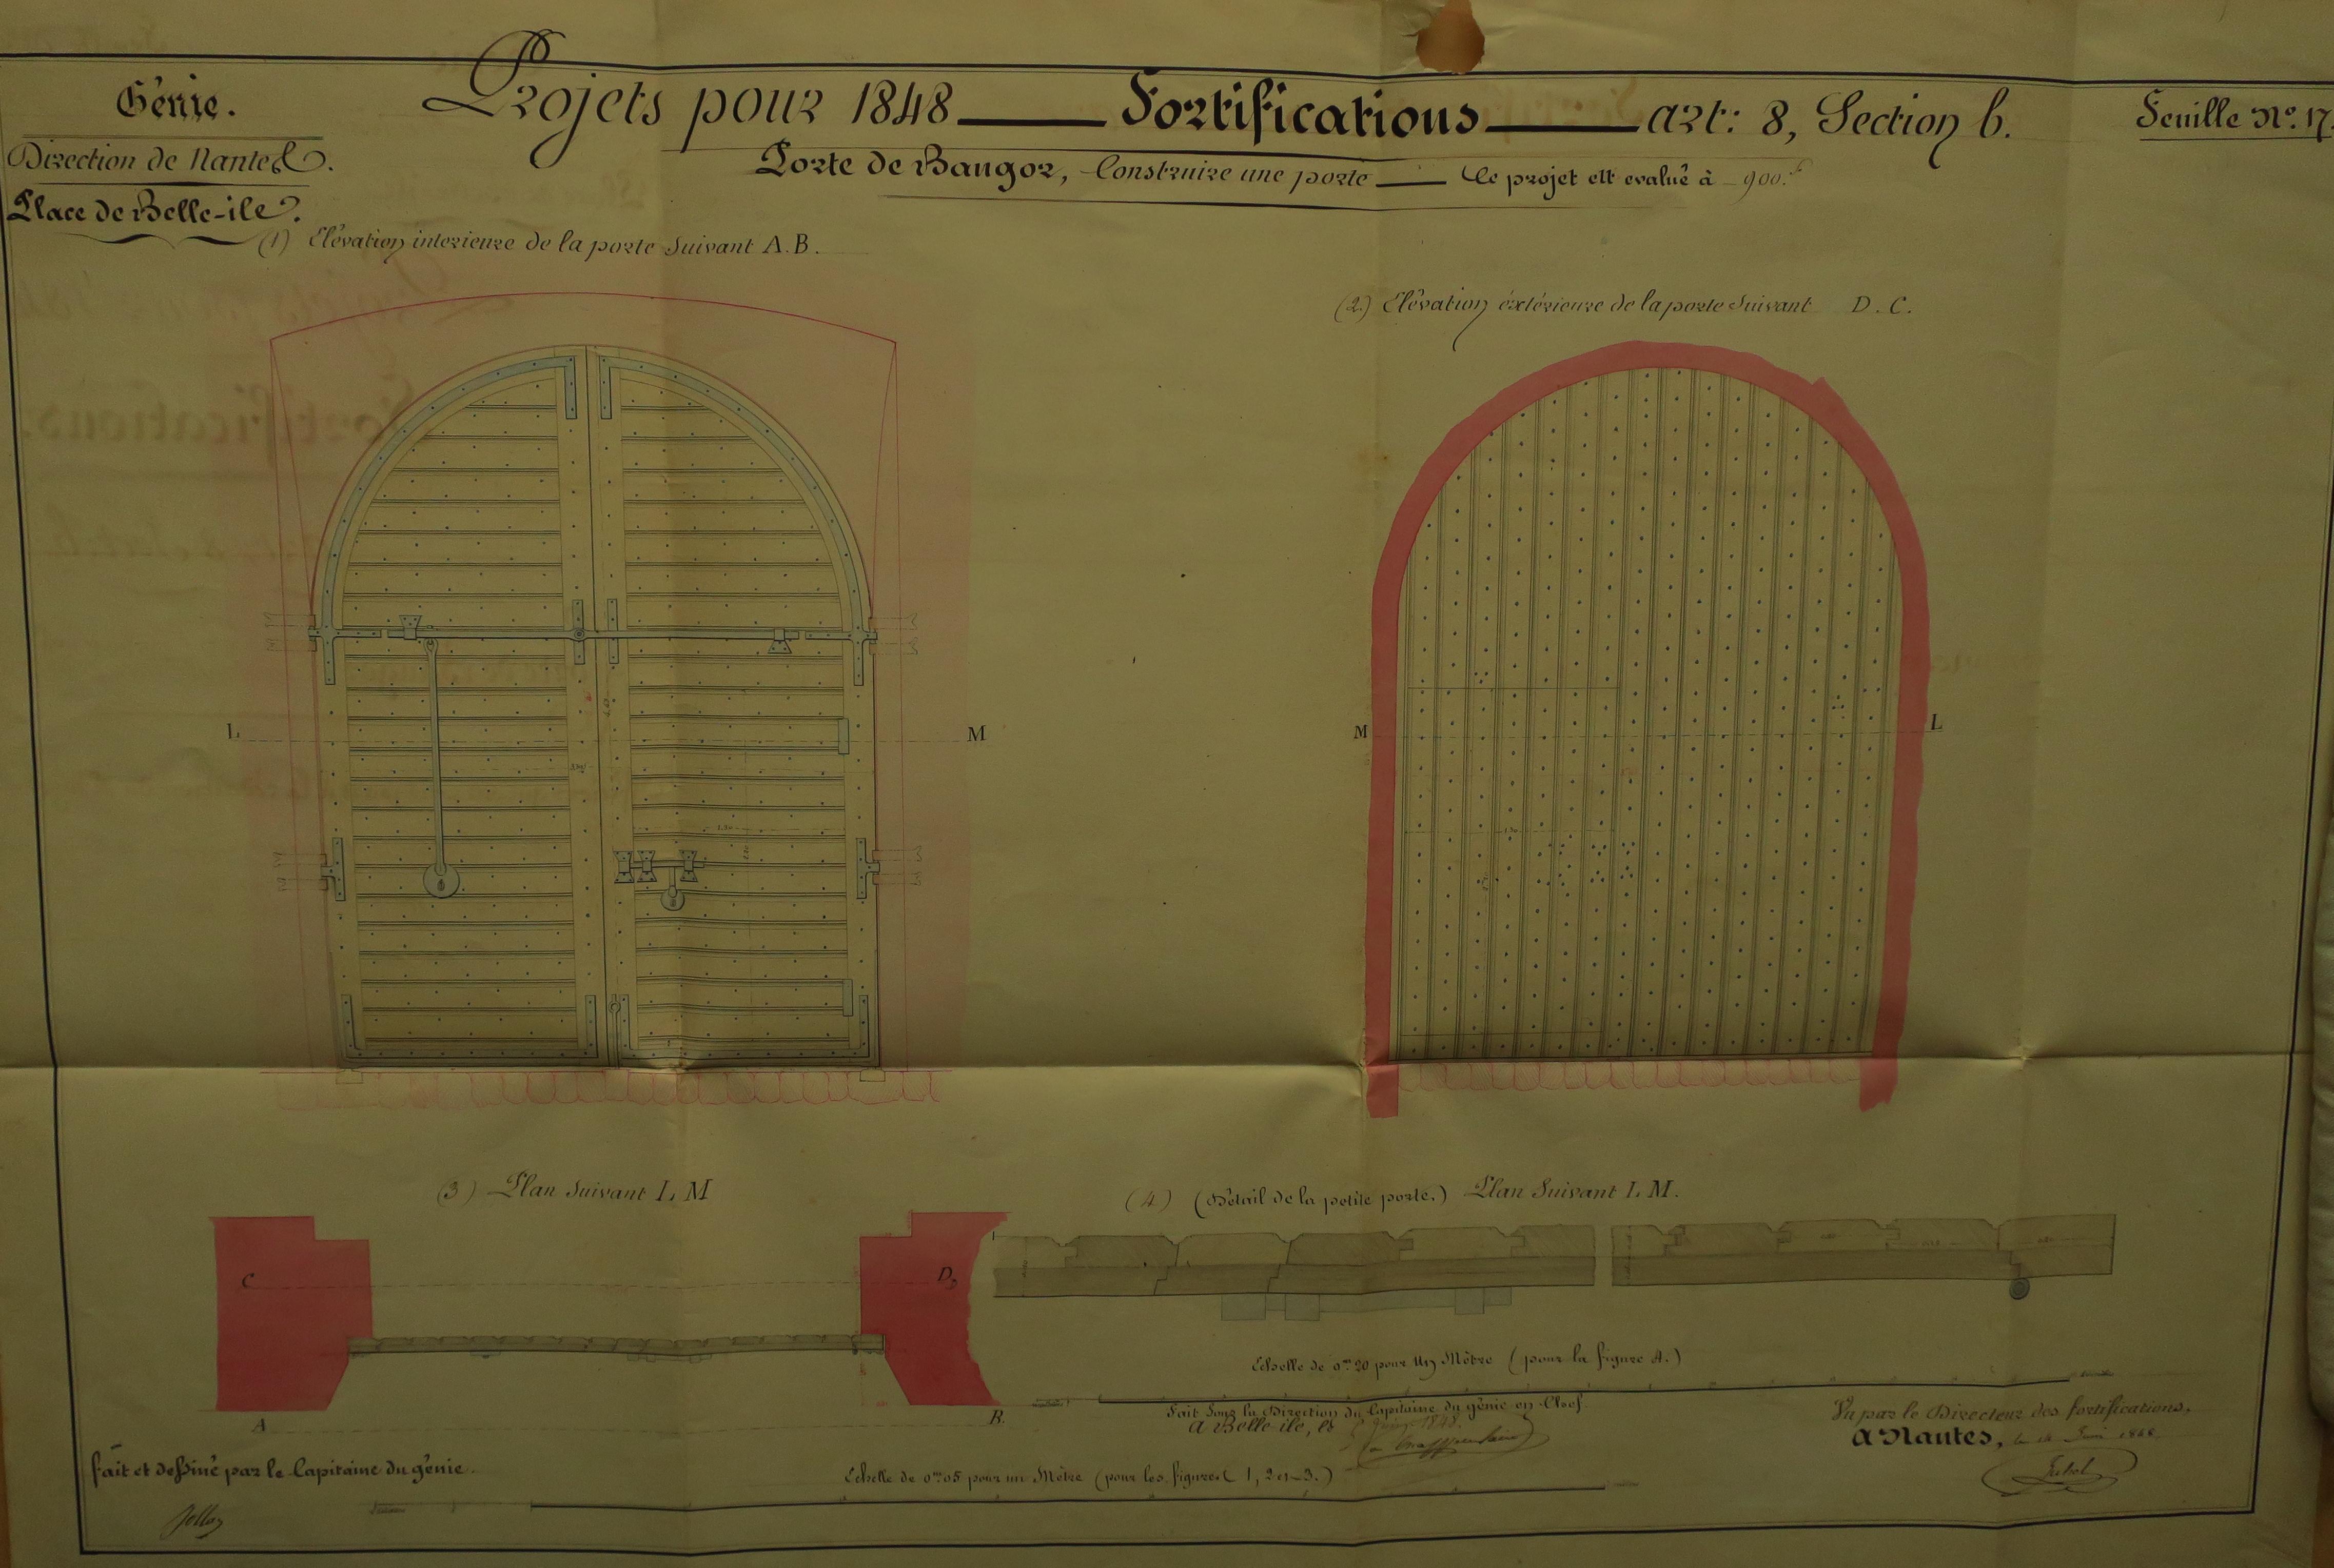 Génie.
Direction de Nantes.
Place de Belle-ile.
Projets pour 1848 — Fortifications — art: 8, Section b.
Feuille Nº. 17.
Porte de Bangor, Construire une porte — Ce projet est evalué à 900.f
(1) Elévation interieure de la porte Suivant A.B.
(2.) Elévation éxtérieure de la porte Suivant D. C.
L
M
M
L
1,30
1,30
(3) Plan Suivant L M
(4) (Détail de la petite porte.) Plan Suivant L M.
C
D
A
B.
Echelle de 0m20 pour un Mètre (pour la figure 4.)
Fait Sous la Direction du Capitaine du génie en Chef
A Belle ile, le 1848.
Vu par le Directeur des fortifications,
A Nantes, le Juin 1848
fait et dessiné par le Capitaine du génie.
Echelle de 0m05 pour un Mètre (pour les figures 1, 2 et 3.)